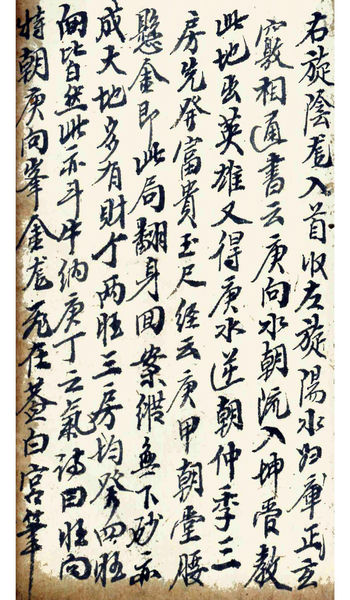 右旋陰龍入首收左旋陽水归庫正玄
竅相通書云庚向水朝流入坤管教
此地出英雄又得庚水逆朝仲季三
房先發富貴玉尺經云庚甲朝堂腰
懸金即此局翻身回案縱無下砂亦
成大地多有財丁两旺三房均發四旺
向皆自然此亦斗牛納庚丁云氣詩曰旺向
特朝庚向峯金龍死在蒼白宮筆